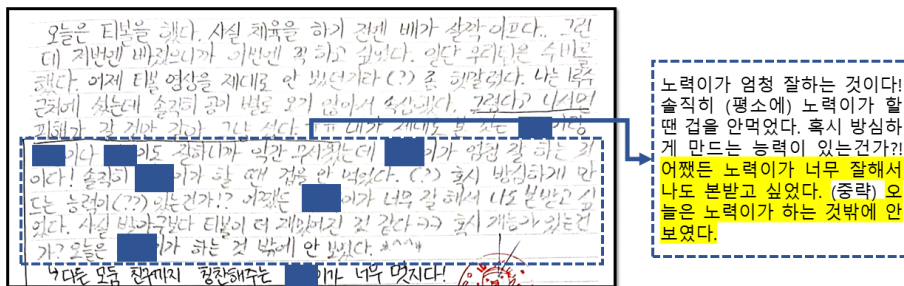 오늘은 티볼을 했다. 사실 체육을 하기 전엔 배가 살짝 아프다.. 그런
데 저번엔 빠졌으니까 이번엔 꼭 하고 싶었다. 일단 우리팀은 수비를
했다. 어제 티볼 영상을 제대로 안 봤던가라 (?) 좀 헷갈렸다. 나는
근처에 섰는데 솔직히 공이 별로 오기 않아서 속상했다. 그렇다고 나서면
피해가 갈 것만 같아 그냥 섰다. 내가 제대로 볼 수 있는
이다 이도 잘하니까 약간 무시했는데 이가 엄청 잘 하는 것
이다! 솔직히 이가 할 때 겁을 안 먹었다. (?) 혹시 방심하게 만
드는 능력이(??) 있는건가!? 어쨌든 이가 너무 잘 해서 나도 본받고 싶
었다. 사실 티볼이 더 재밌어진 것 같다 혹시 재능이 있는건
가? 오늘은 이가 하는 것 밖에 안 보였다. *^^*
다른 모둠 친구까지 칭찬해주는 이가 너무 멋지다!
노력이가 엄청 잘하는 것이다!
솔직히 (평소에) 노력이가 할
땐 겁을 안먹었다. 혹시 방심하
게 만드는 능력이 있는건가?!
어쨌든 노력이가 너무 잘해서
나도 본받고 싶었다. (중략) 오
늘은 노력이가 하는 것밖에 안
보였다.